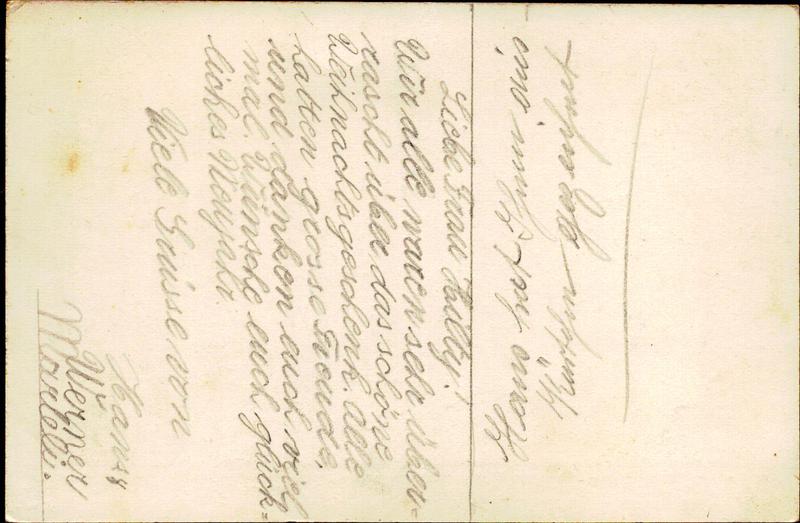 Liebe Frau
Wir alle waren sehr über-
rascht über das schöne
Weihnachtsgeschenk. Alle
hatten grosse Freude,
und danken euch viel
mal. Wünsche euch glück-
liches Neujahr.
Viele Grüsse von
Hans &
Werner
Mama hat